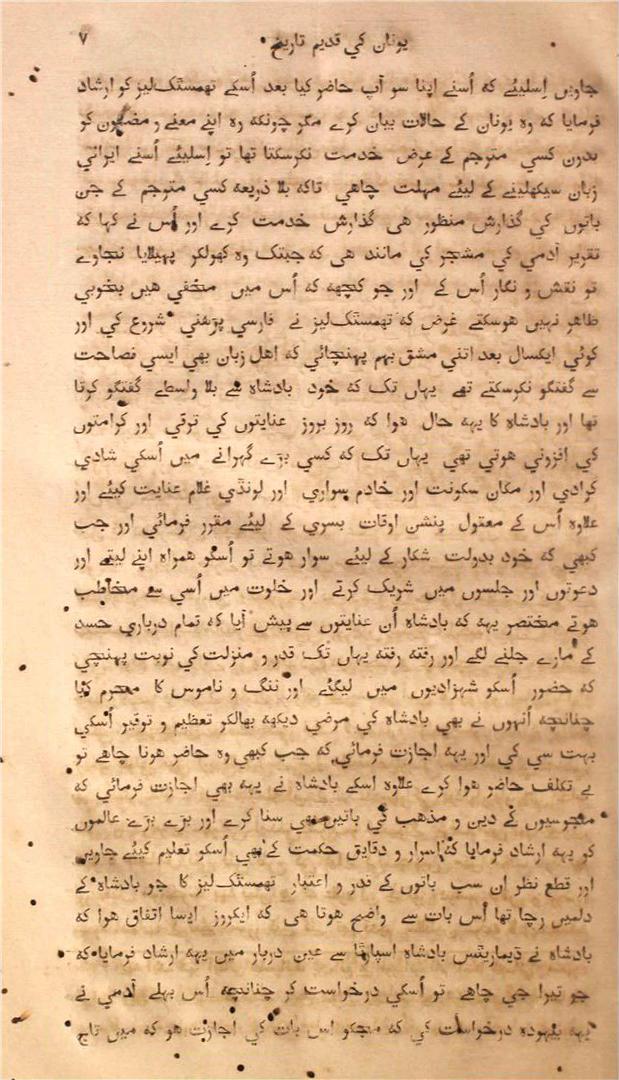 یونان کي قدیم تاریخ ۷
جاویں اِسلیئے که اُسنے اپنا سو آپ حاضر کیا بعد اُسکے تهمسٹک‌لیز کو ارشاد
فرمایا که وه یونان کے حالات بیان کرے مگر چونکه وه اپنے معنے و مضمون کو
بدون کسي مترجم کے عرض خدمت نکرسکتا تها تو اِسلیئے اُسنے ایراني
زبان سیکهلینے کے لیئے مہلت چاهي تاکه بلا ذریعه کسي مترجم کے جن
باتوں کي گذارش منظور هی گذارش خدمت کرے اور اُس نے کہا که
تقریر آدمي کي مشجر کي مانند هی که جبتک وه کهولکر پهیلایا نجاوے
تو نقش و نگار اُس کے اور جو کچهه که اُس میں مخفي هیں بخوبي
ظاهر نہیں هوسکتے غرض که تهمسٹک‌لیز نے فارسي پڑهني شروع کي اور
کوئي ایکسال بعد اتني مشق بہم پہنچائي که اهل زبان بهي ایسي فصاحت
سے گفتگو نکرسکتے تهے یہاں تک که خود بادشاه سے بلا واسطے گفتگو کرتا
تها اور بادشاه کا یہه حال هوا که روز بروز عنایتوں کي ترقي اور کرامتوں
کي افزوني هوتي تهي یہاں تک که کسي بڑے گہرانے میں اُسکي شادي
کرادي اور مکان سکونت اور خادم سواري اور لونڈي غلام عنایت کیئے اور
علاوه اُس کے معقول پنشن اوقات بسري کے لیئے مقرر فرمائي اور جب
کبهي که خود بدولت شکار کے لیئے سوار هوتے تو اُسکو همراه اپنے لیتے اور
دعوتوں اور جلسوں میں شریک کرتے اور خلوت میں اُسي سے مخاطب
هوتے مختصر یہه که بادشاه اُن عنایتوں سے پیش آیا که تمام درباري حسد
کے مارے جلنے لگے اور رفته رفته یہاں تک قدر و منزلت کي نوبت پہنچي
که حضور اُسکو شہزادیوں میں لیگئے اور ننگ و ناموس کا محرم کیا
چنانچه اُنہوں نے بهي بادشاه کي مرضي دیکهه بهالکر تعظیم و توقیر اُسکي
بہت سي کي اور یہه اجازت فرمائي که جب کبهي وه حاضر هونا چاهے تو
بے تکلف حاضر هوا کرے علاوه اسکے بادشاه نے یہه بهي اجازت فرمائي که
مجوسیوں کے دین و مذهب کي باتیں بهي سنا کرے اور بڑے بڑے عالموں
کو یہه ارشاد فرمایا که اسرار و دقایق حکمت کے بهي اُسکو تعلیم کیئے جاویں
اور قطع نظر ان سب باتوں کے قدر و اعتبار تهمسٹک‌لیز کا جو بادشاه کے
دلمیں رچا تها اُس بات سے واضح هوتا هی که ایکروز ایسا اتفاق هوا که
بادشاه نے ڈیماریٹس بادشاه اسپارٹا سے عین دربار میں یہه ارشاد فرمایا که
جو تیرا جي چاهے تو اُسکي درخواست کر چنانچه اُس بہلے آدمي نے
یہه بیہوده درخواست کي که مجکو اس بات کي اجازت هو که میں تاج